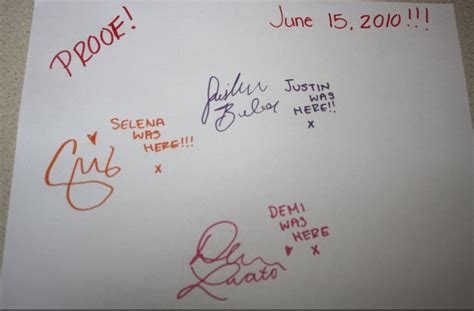 PROOF!
June 15, 2010!!!
Justin
Bieber
JUSTIN
WAS
HERE!!
x
SELENA
WAS
HERE!!!
x
DEMI
WAS
HERE
x
Demi
Lovato